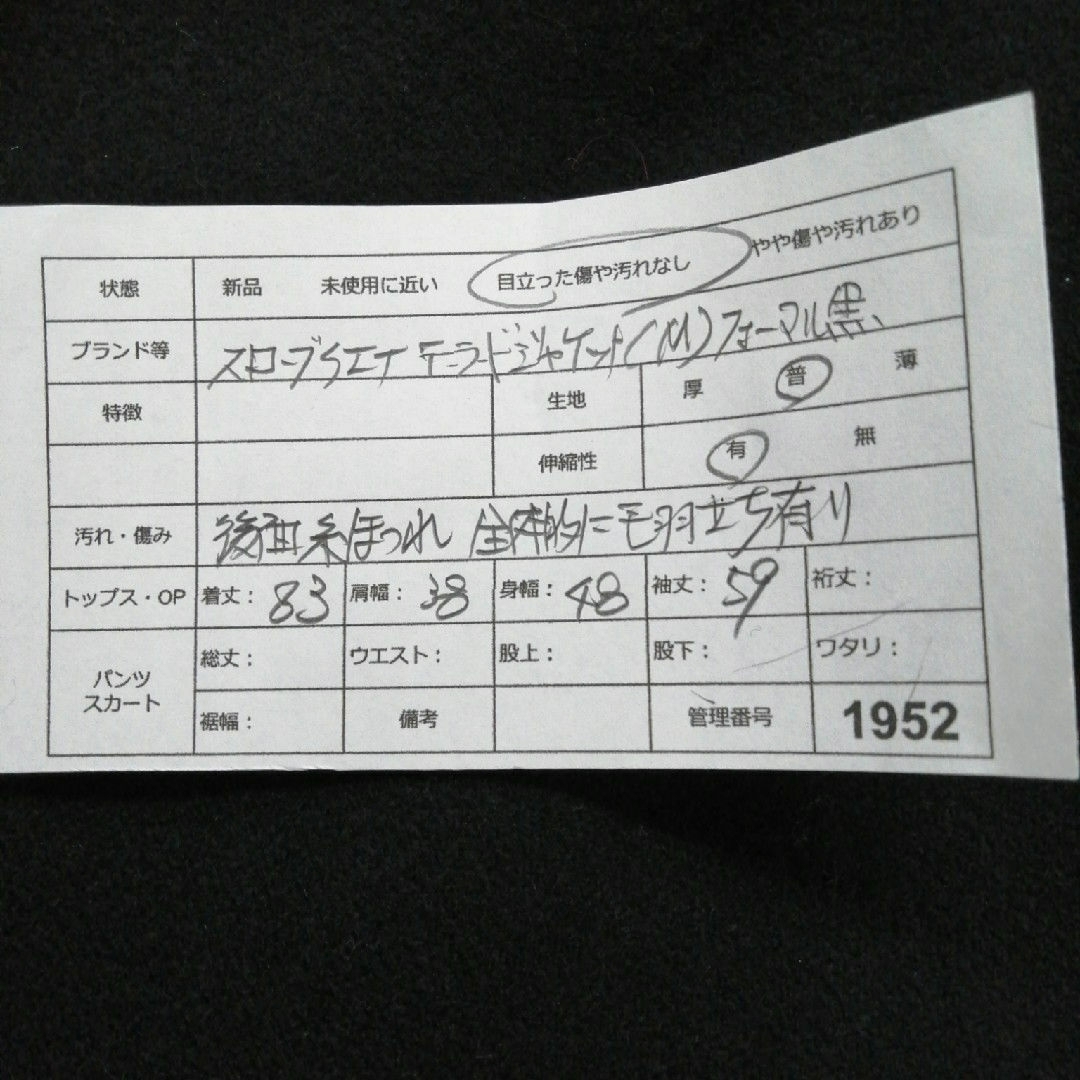 状態 新品 未使用に近い 目立った傷や汚れなし やや傷や汚れあり
ブランド等 スローブイエナ テーラードジャケット (M) フォーマル 黒
特徴 生地 厚 普 薄
伸縮性 有 無
汚れ・傷み 後 糸ほつれ 全体的に毛羽立ち有り
トップス・OP 着丈: 83 肩幅: 38 身幅: 48 袖丈: 59 裄丈:
パンツ スカート 総丈: ウエスト: 股上: 股下: ワタリ:
裾幅: 備考 管理番号 1952